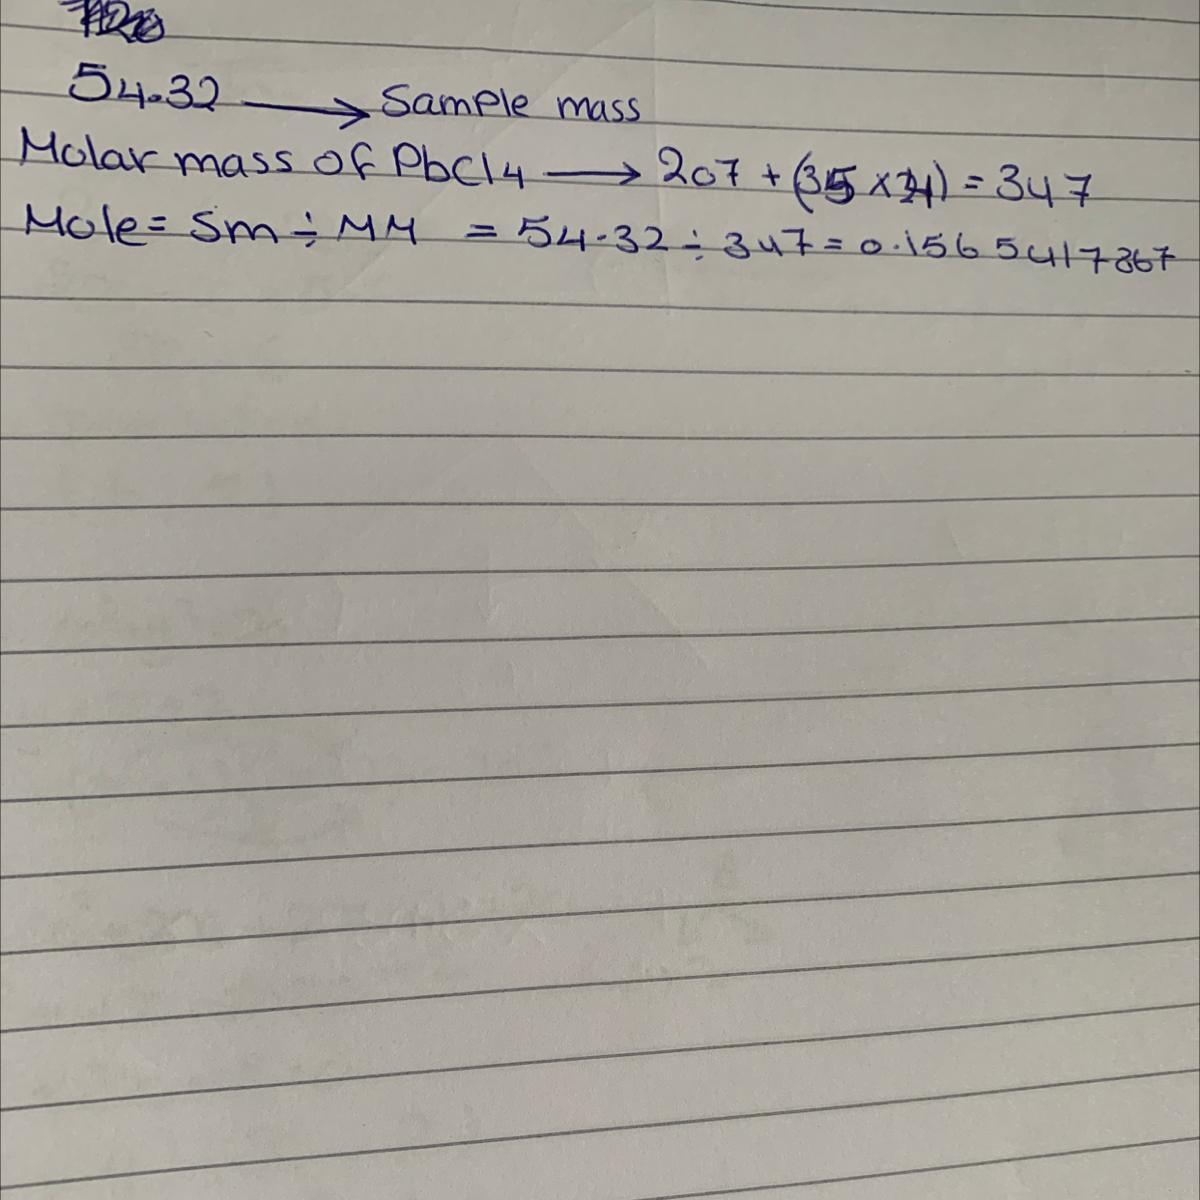 54.32 → Sample mass
Molar mass of PbCl4 → 207 + (35 x 4) = 347
Mole = Sm ÷ MM = 54.32 ÷ 347 = 0.1565417867